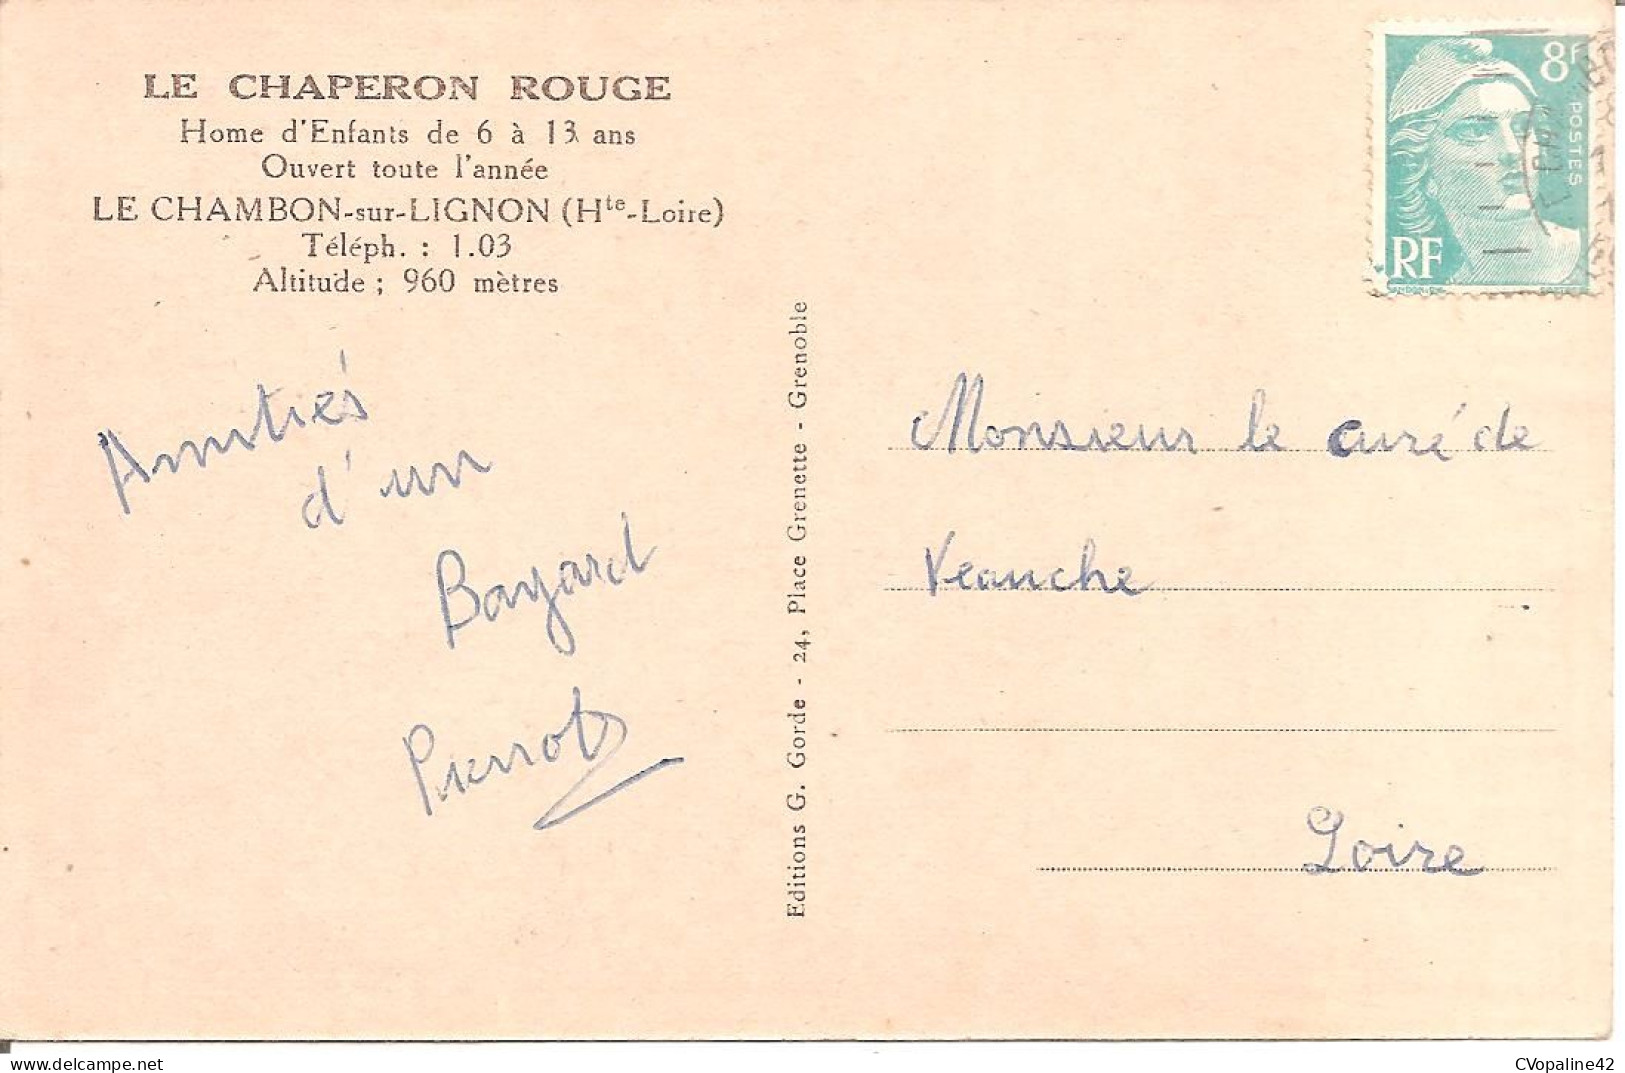 LE CHAPERON ROUGE
Home d'Enfants de 6 à 13 ans
Ouvert toute l'année
LE CHAMBON-sur-LIGNON (Hte-Loire)
Téléph. : 1.03
Altitude ; 960 mètres
Amitiés
d'un
Bayard
Pierrot
Editions G. Gorde - 24, Place Grenette - Grenoble
8F
POSTES
RF
Monsieur le curé de
Veauche
Loire
delcampe.net
CVopaline42